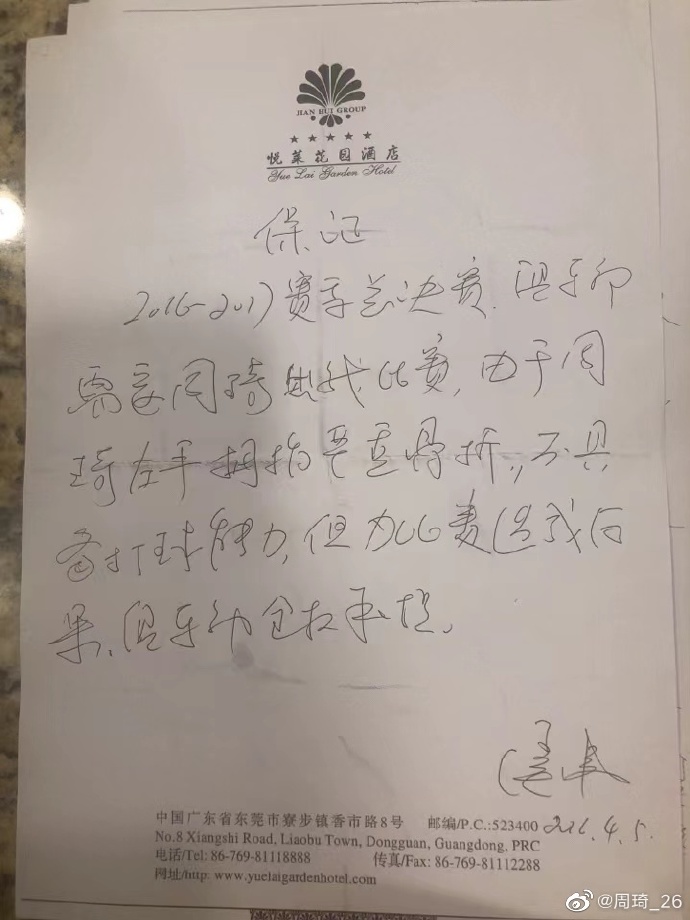 JIAN HUI GROUP
★★★★★
悦莱花园酒店
Yue Lai Garden Hotel
保证
2016-2017赛季总决赛.俱乐部
需要周琦 比赛,由于周
琦左手拇指严重骨折,不具
备打球能力,但 比赛造成后
果.俱乐部全权承担.
2016.4.5.
中国广东省东莞市寮步镇香市路8号 邮编/P.C.:523400
No.8 Xiangshi Road, Liaobu Town, Dongguan, Guangdong, PRC
电话/Tel: 86-769-81118888 传真/Fax: 86-769-81112288
网址/http: www.yuelaigardenhotel.com
@周琦_26